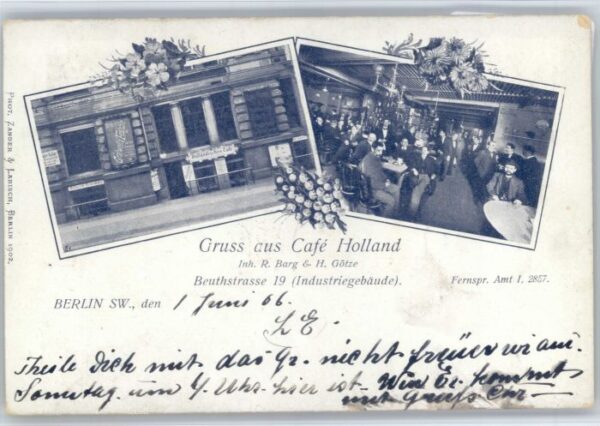 PHOT. ZANDER & LABISCH, BERLIN 1902.
Gruss aus Café Holland
Inh. R. Barg & H. Götze
Beuthstrasse 19 (Industriegebäude).
Fernspr. Amt I, 2857.
BERLIN SW., den 1 Juni 06.
L E.
Theile Dich mit das Gr. nicht früer wi am.
Sonntag um 4 Uhr hier ist. Wen Er kommt
mit Gruß